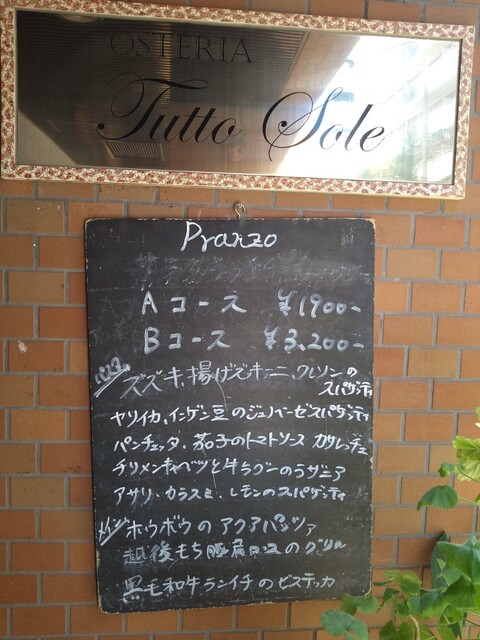 OSTERIA
Tutto Sole
Pranzo
Aコース ¥1900-
Bコース ¥3,200-
パスタ
スズキ、揚げズッキーニ、クレソンの
スパゲッティ
ヤリイカ、インゲン豆のジェノベーゼスパゲッティ
パンチェッタ、茄子のトマトソース カサレッチェ
チリメンキャベツと牛ラグーのラザニア
アサリ、カラスミ、レモンのスパゲッティ
メイン
ホウボウのアクアパッツァ
越後もち豚肩ロースのグリル
黒毛和牛ランイチのビステッカ